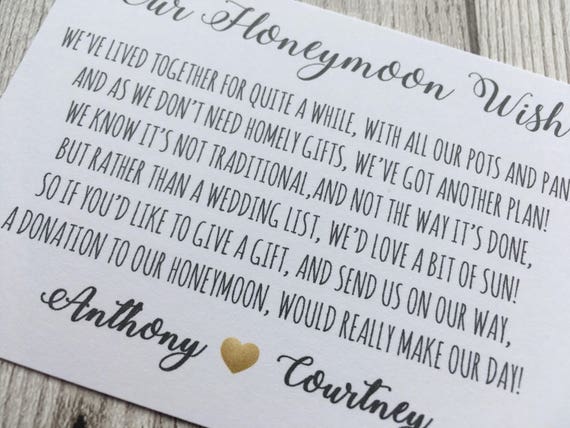 Our Honeymoon Wish
WE'VE LIVED TOGETHER FOR QUITE A WHILE, WITH ALL OUR POTS AND PAN
AND AS WE DON'T NEED HOMELY GIFTS, WE'VE GOT ANOTHER PLAN!
WE KNOW IT'S NOT TRADITIONAL,AND NOT THE WAY IT'S DONE,
BUT RATHER THAN A WEDDING LIST, WE'D LOVE A BIT OF SUN!
SO IF YOU'D LIKE TO GIVE A GIFT, AND SEND US ON OUR WAY,
A DONATION TO OUR HONEYMOON, WOULD REALLY MAKE OUR DAY!
Anthony Courtney